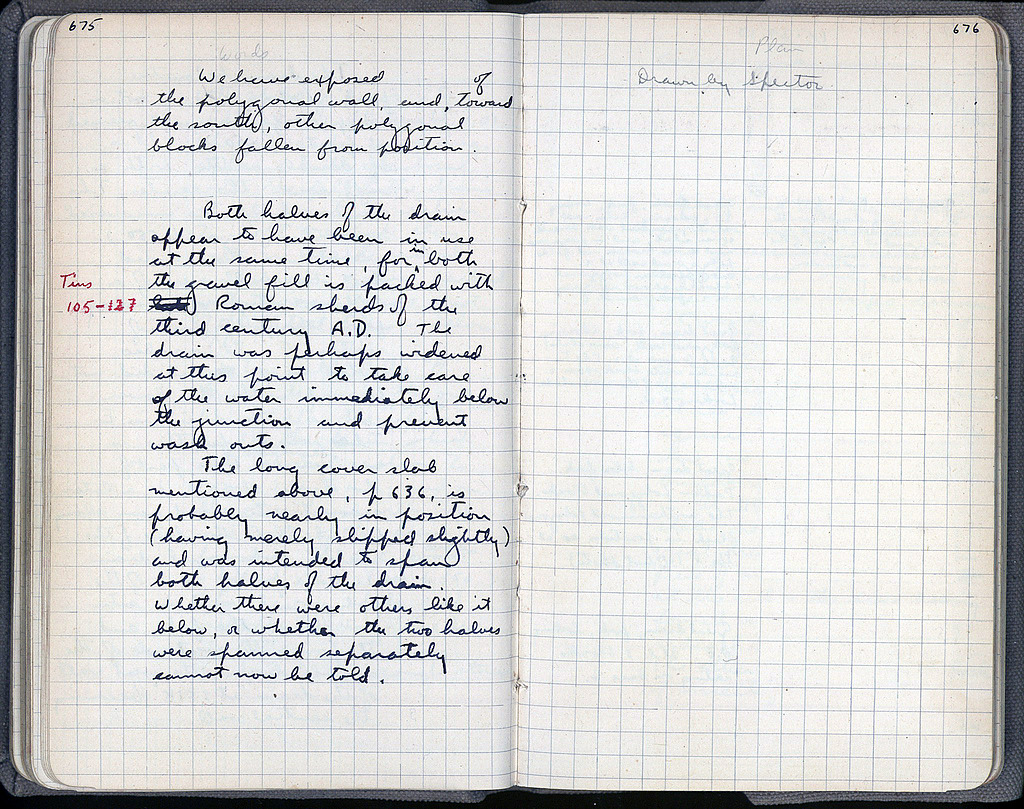 675
Words
We have exposed of
the polygonal wall, and, toward
the south, other polygonal
blocks fallen from position.
Both halves of the drain
appear to have been in use
at the same time, for in both
Tins
the gravel fill is packed with
105-127
Roman sherds of the
third century A.D. The
drain was perhaps widened
at this point to take care
of the water immediately below
the junction and prevent
wash outs.
The long cover slab
mentioned above, p 636, is
probably nearly in position
(having merely slipped slightly)
and was intended to span
both halves of the drain.
Whether there were others like it
below, or whether the two halves
were spanned separately
cannot now be told.
676
Plan
Drawn by Spector